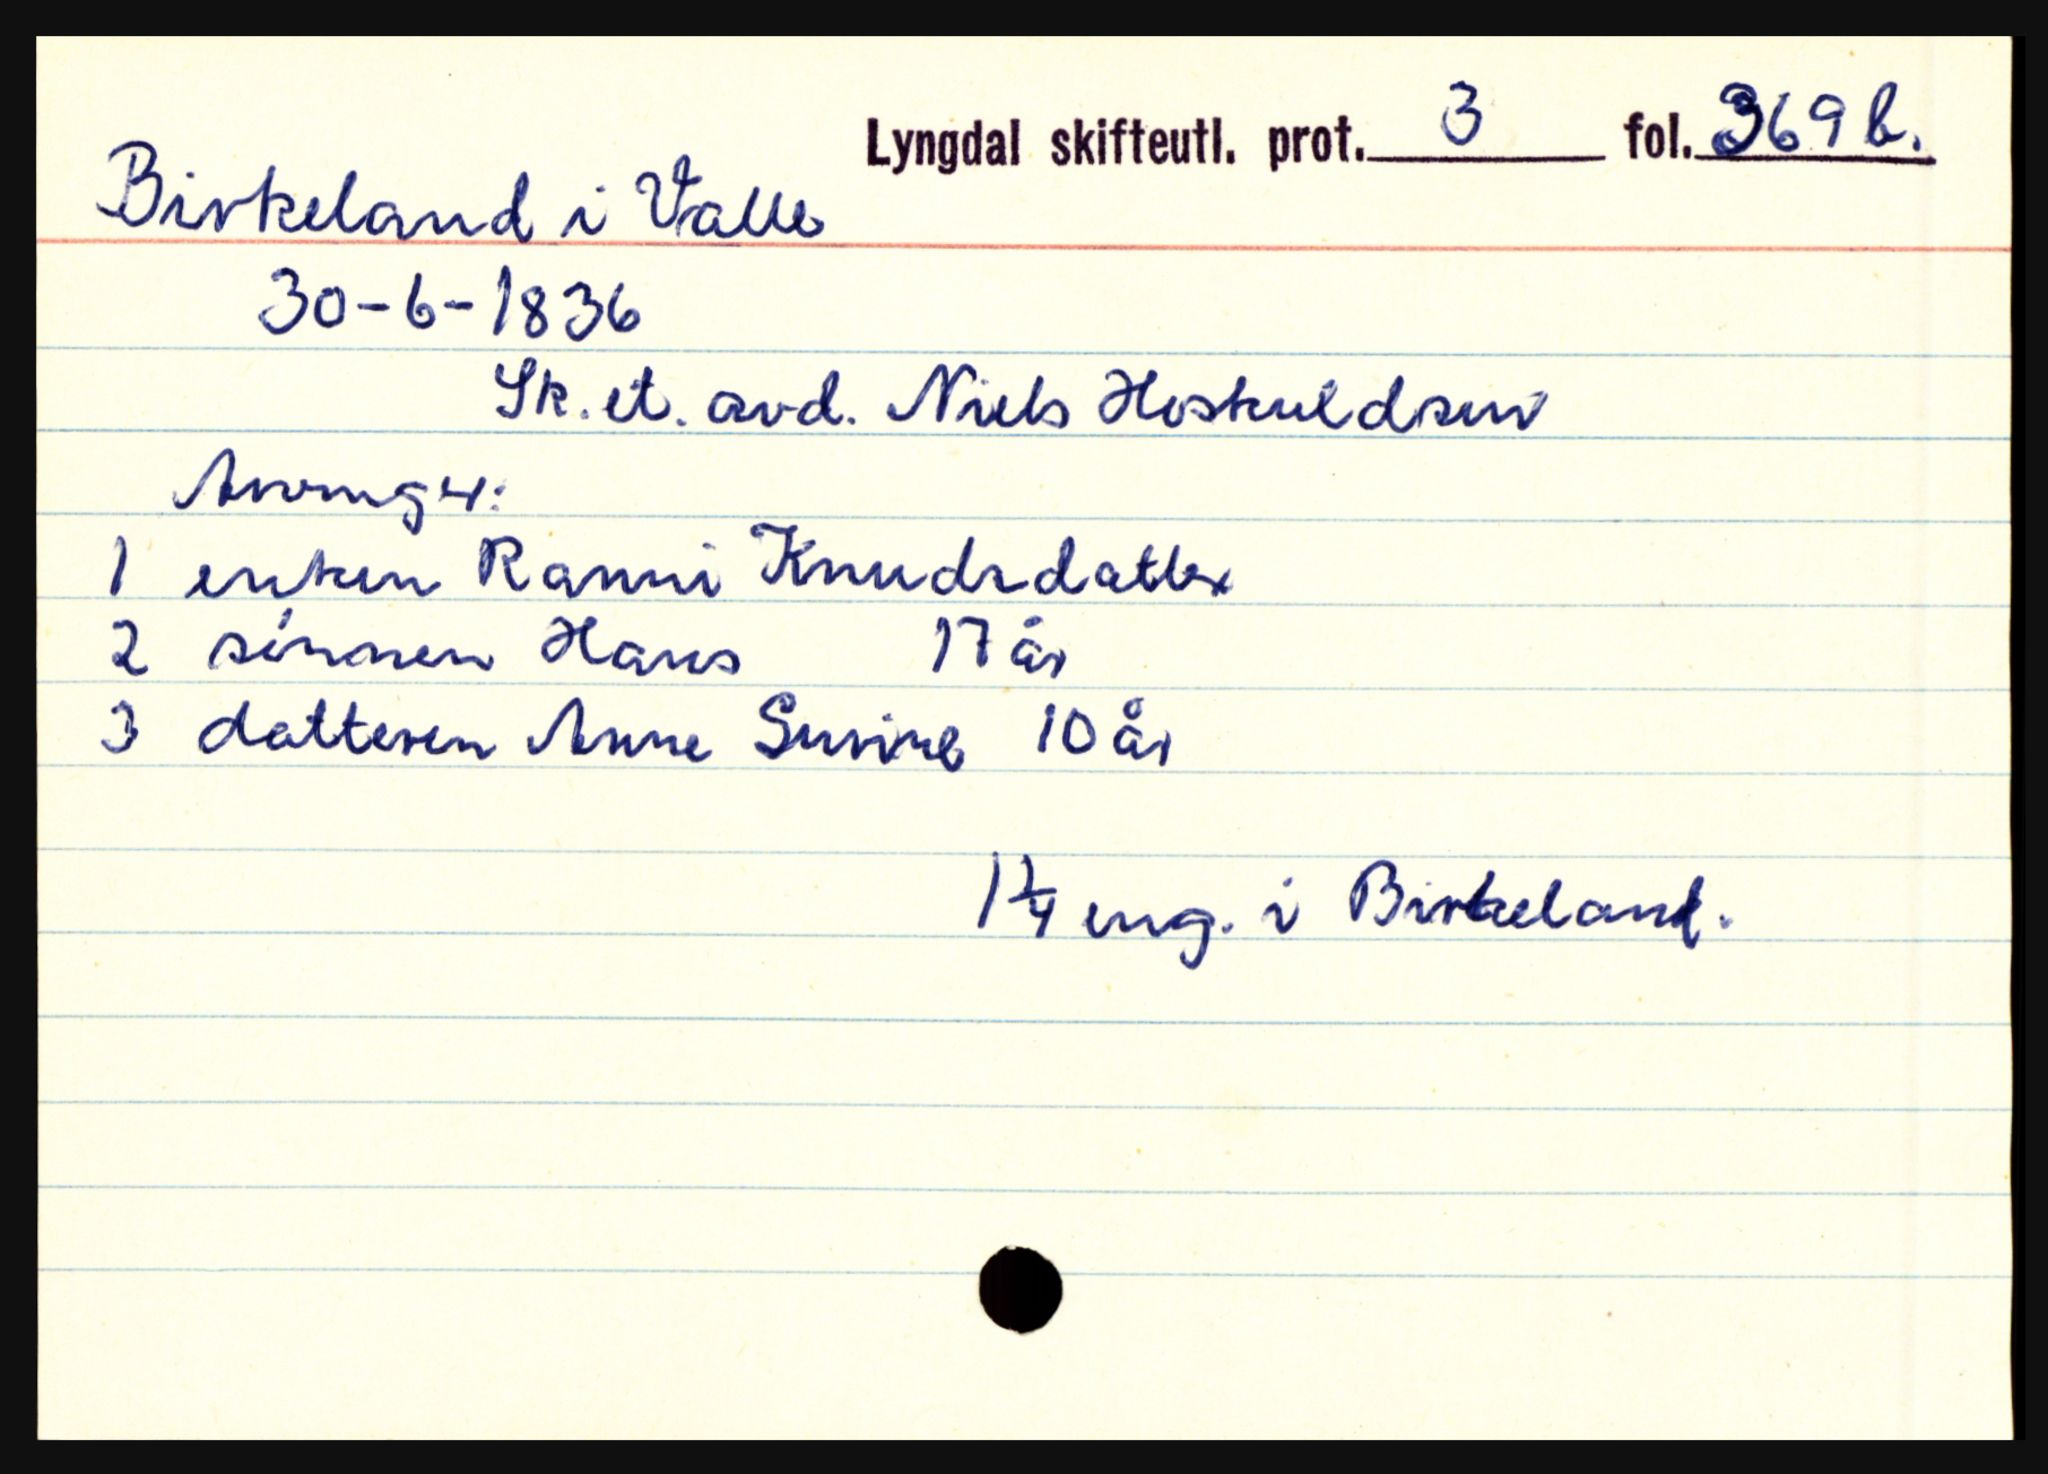 Lyngdal skifteutl. prot. 3 fol. 369 b.
Birkeland i Valle
30-6-1836
Sk. et. avd. Niels Hoskuldsen
Arvinger:
1 enken Ranni Knudsdatter
2 sønnen Hans 17 år
3 datteren Anne Surine 10 år
1 1/4 eng. i Birkeland.